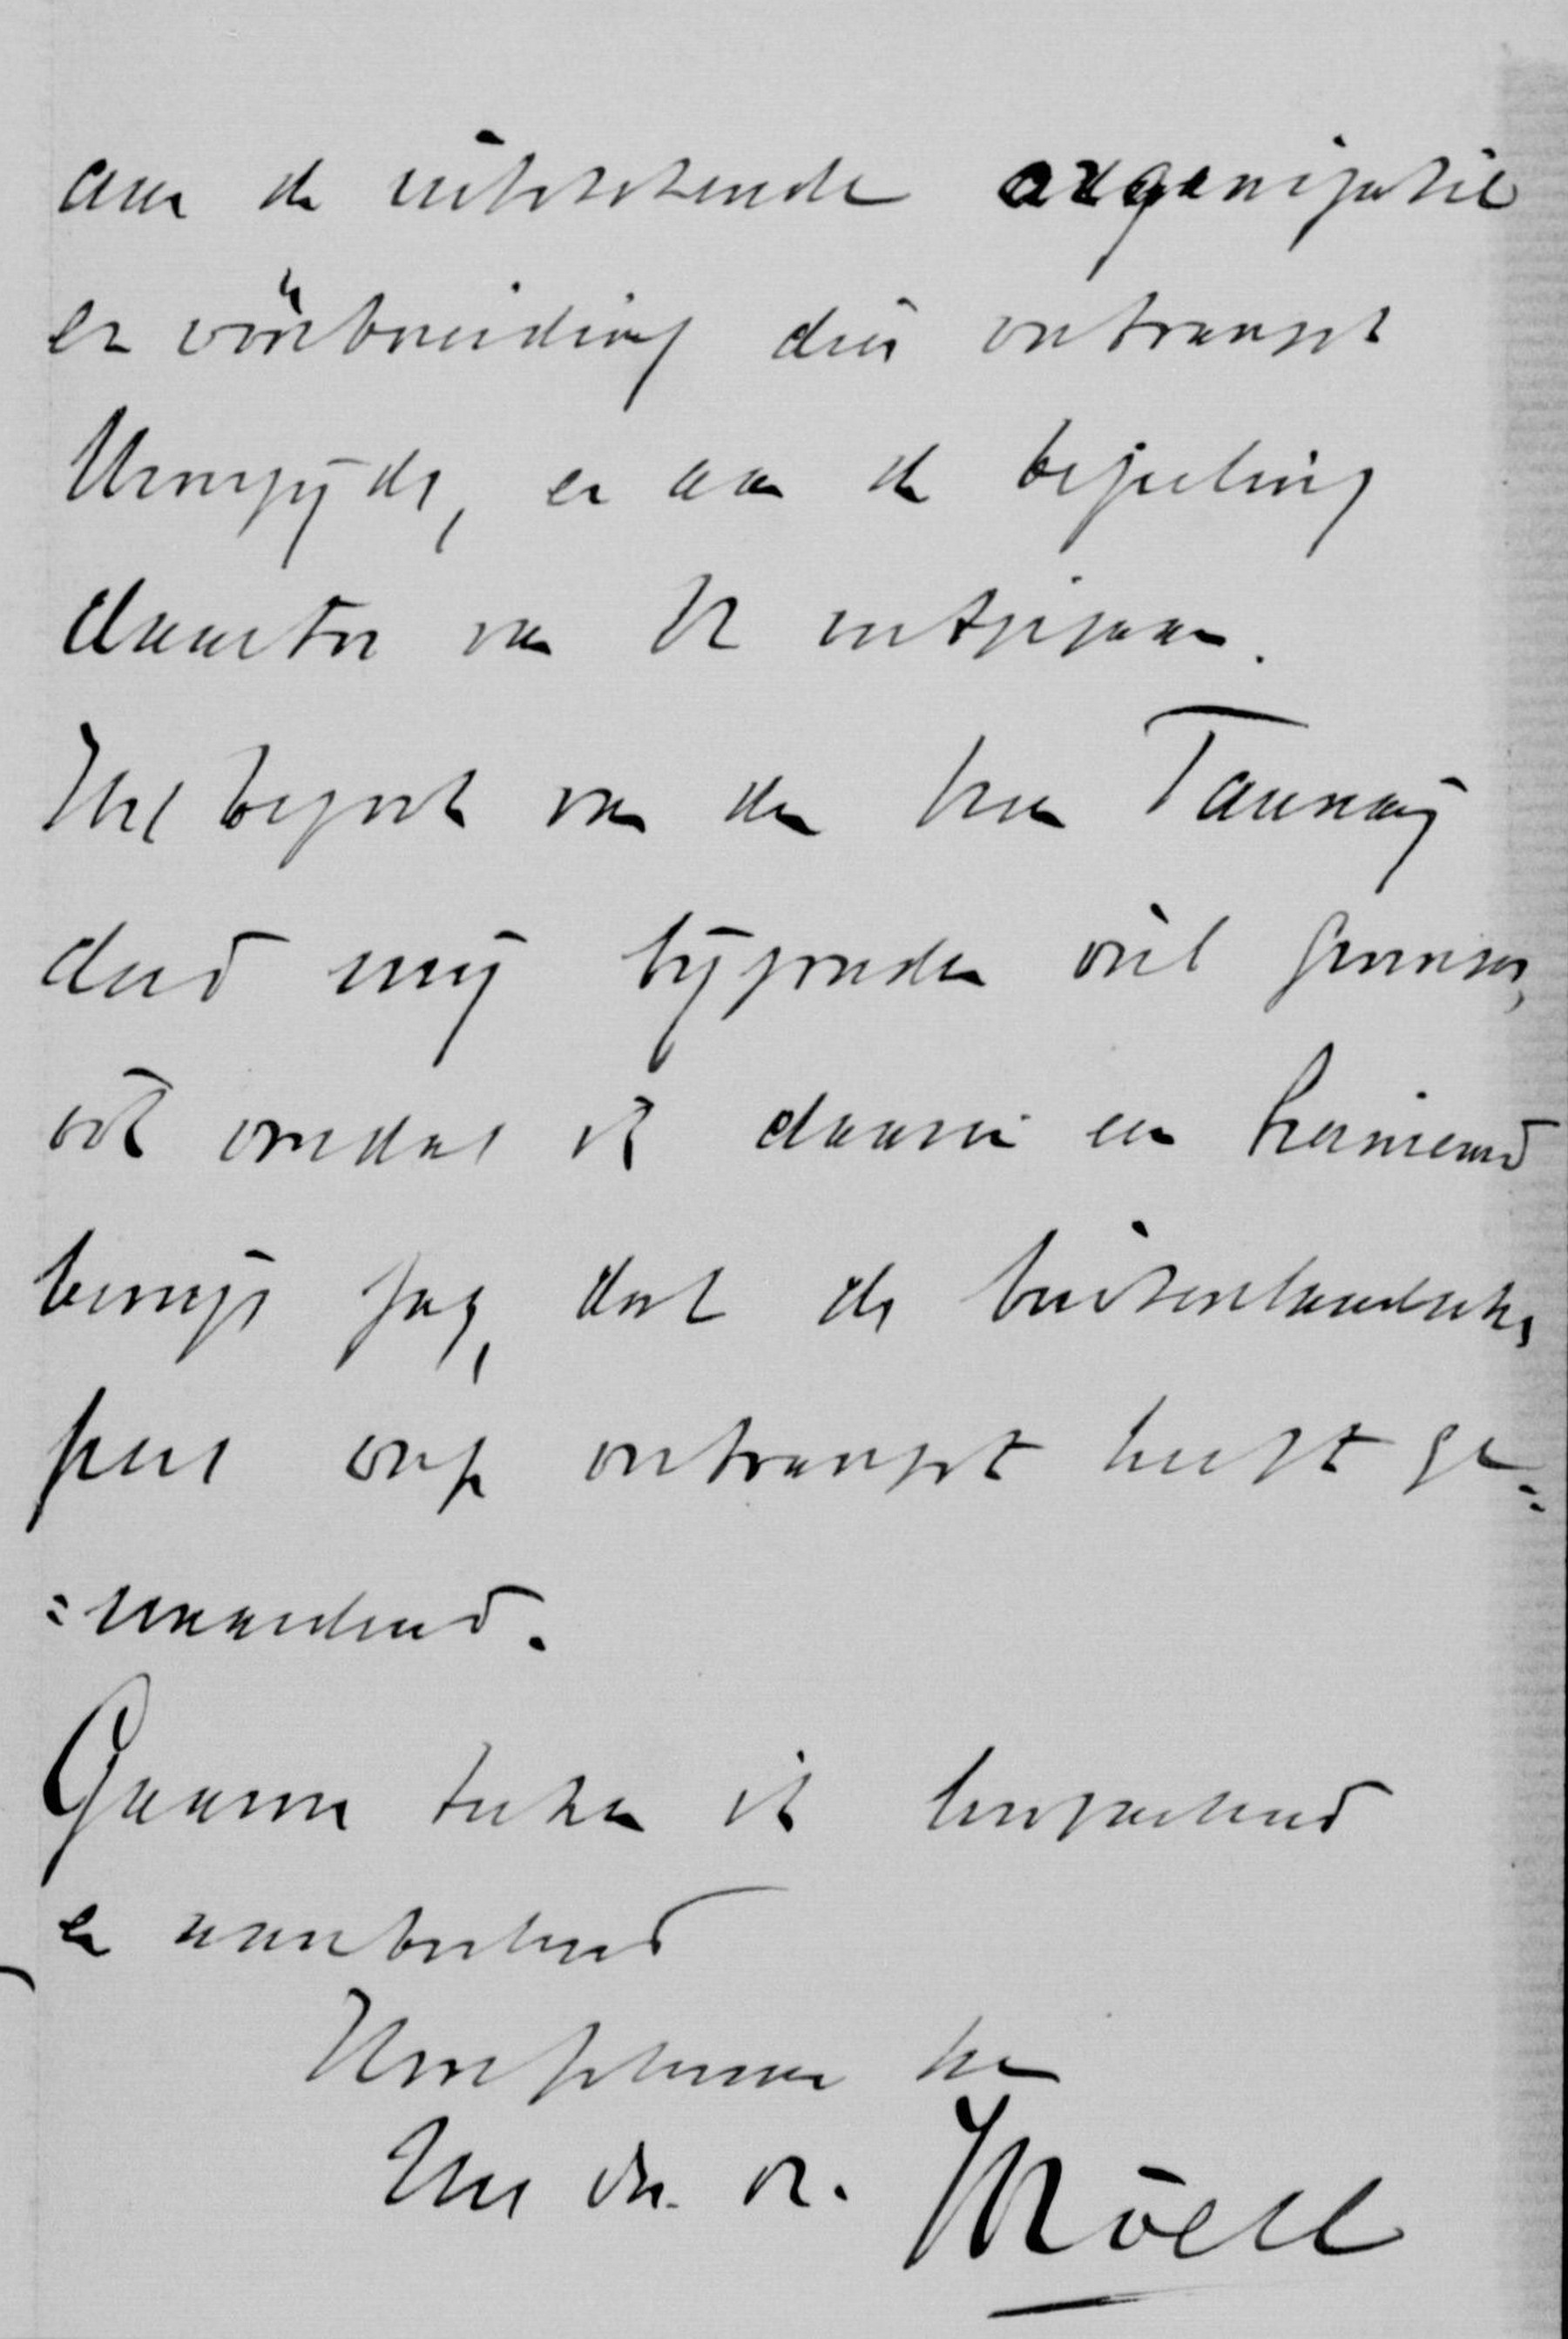 aan de uitstekende organisatie
en voorbereiding dier ontvangst
Uwerzijds, en aan de bezieling
daartoe van U uitgegaan.
Het bezoek van den heer Taunay
deed mij bijzonder veel genoegen,
ook omdat ik daarin een hernieuwd
bewijs zag, dat de buitenlandsche
pers onze ontvangst heeft ge=
=waardeerd.
Gaarne teken ik hoogachtend
en aanbevelend
Uw dw. dr.